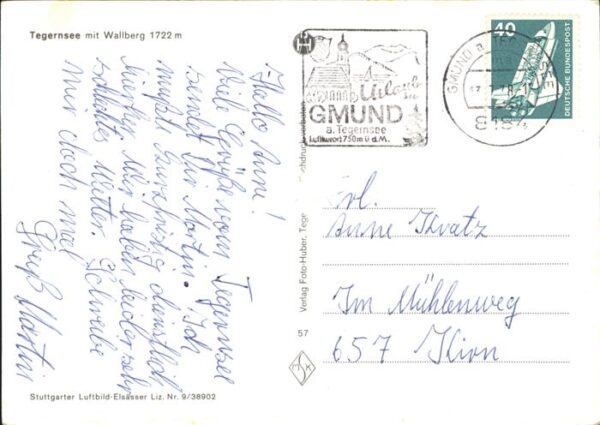 Tegernsee mit Wallberg 1722 m
Hallo Anne!
Viele Grüße vom Tegernsee
sendet Dir Martin. Ich
mußte kurzfristig dienstlich
hierher. Wir haben leider sehr
schlechtes Wetter. Schreibe
mir doch mal
Gruß Martin
Stuttgarter Luftbild-Elsässer Liz. Nr. 9/38902
Verlag Foto-Huber, Tege
chdruck verboten
57
Urlaub
in
GMUND
a. Tegernsee
Luftkurort 750 m ü. d. M.
GMUND a
8184
40
DEUTSCHE BUNDESPOST
Frl.
Anne Kratz
Im Mühlenweg
657 Kirn